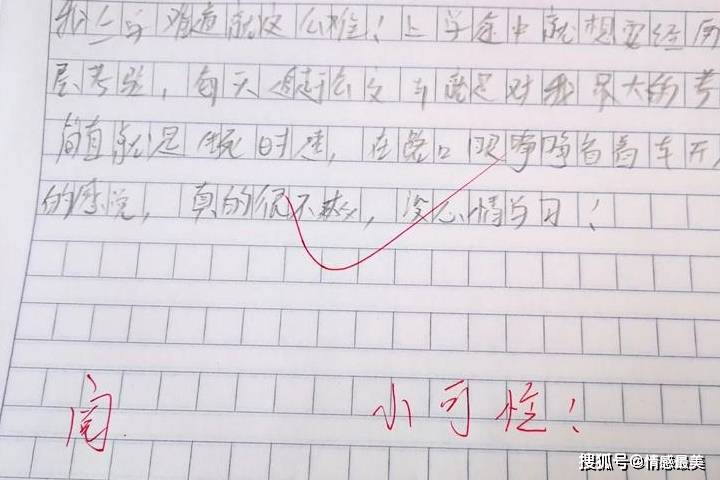 我上学难道就这么难！上学途中就想要经历
层考验，每天追赶公交车就是对我最大的考
简直就是生死时速，在路口眼睁睁看着车开
的感觉，真的很不爽，没心情学习！
阅 小可怜！
搜狐号@情感最美